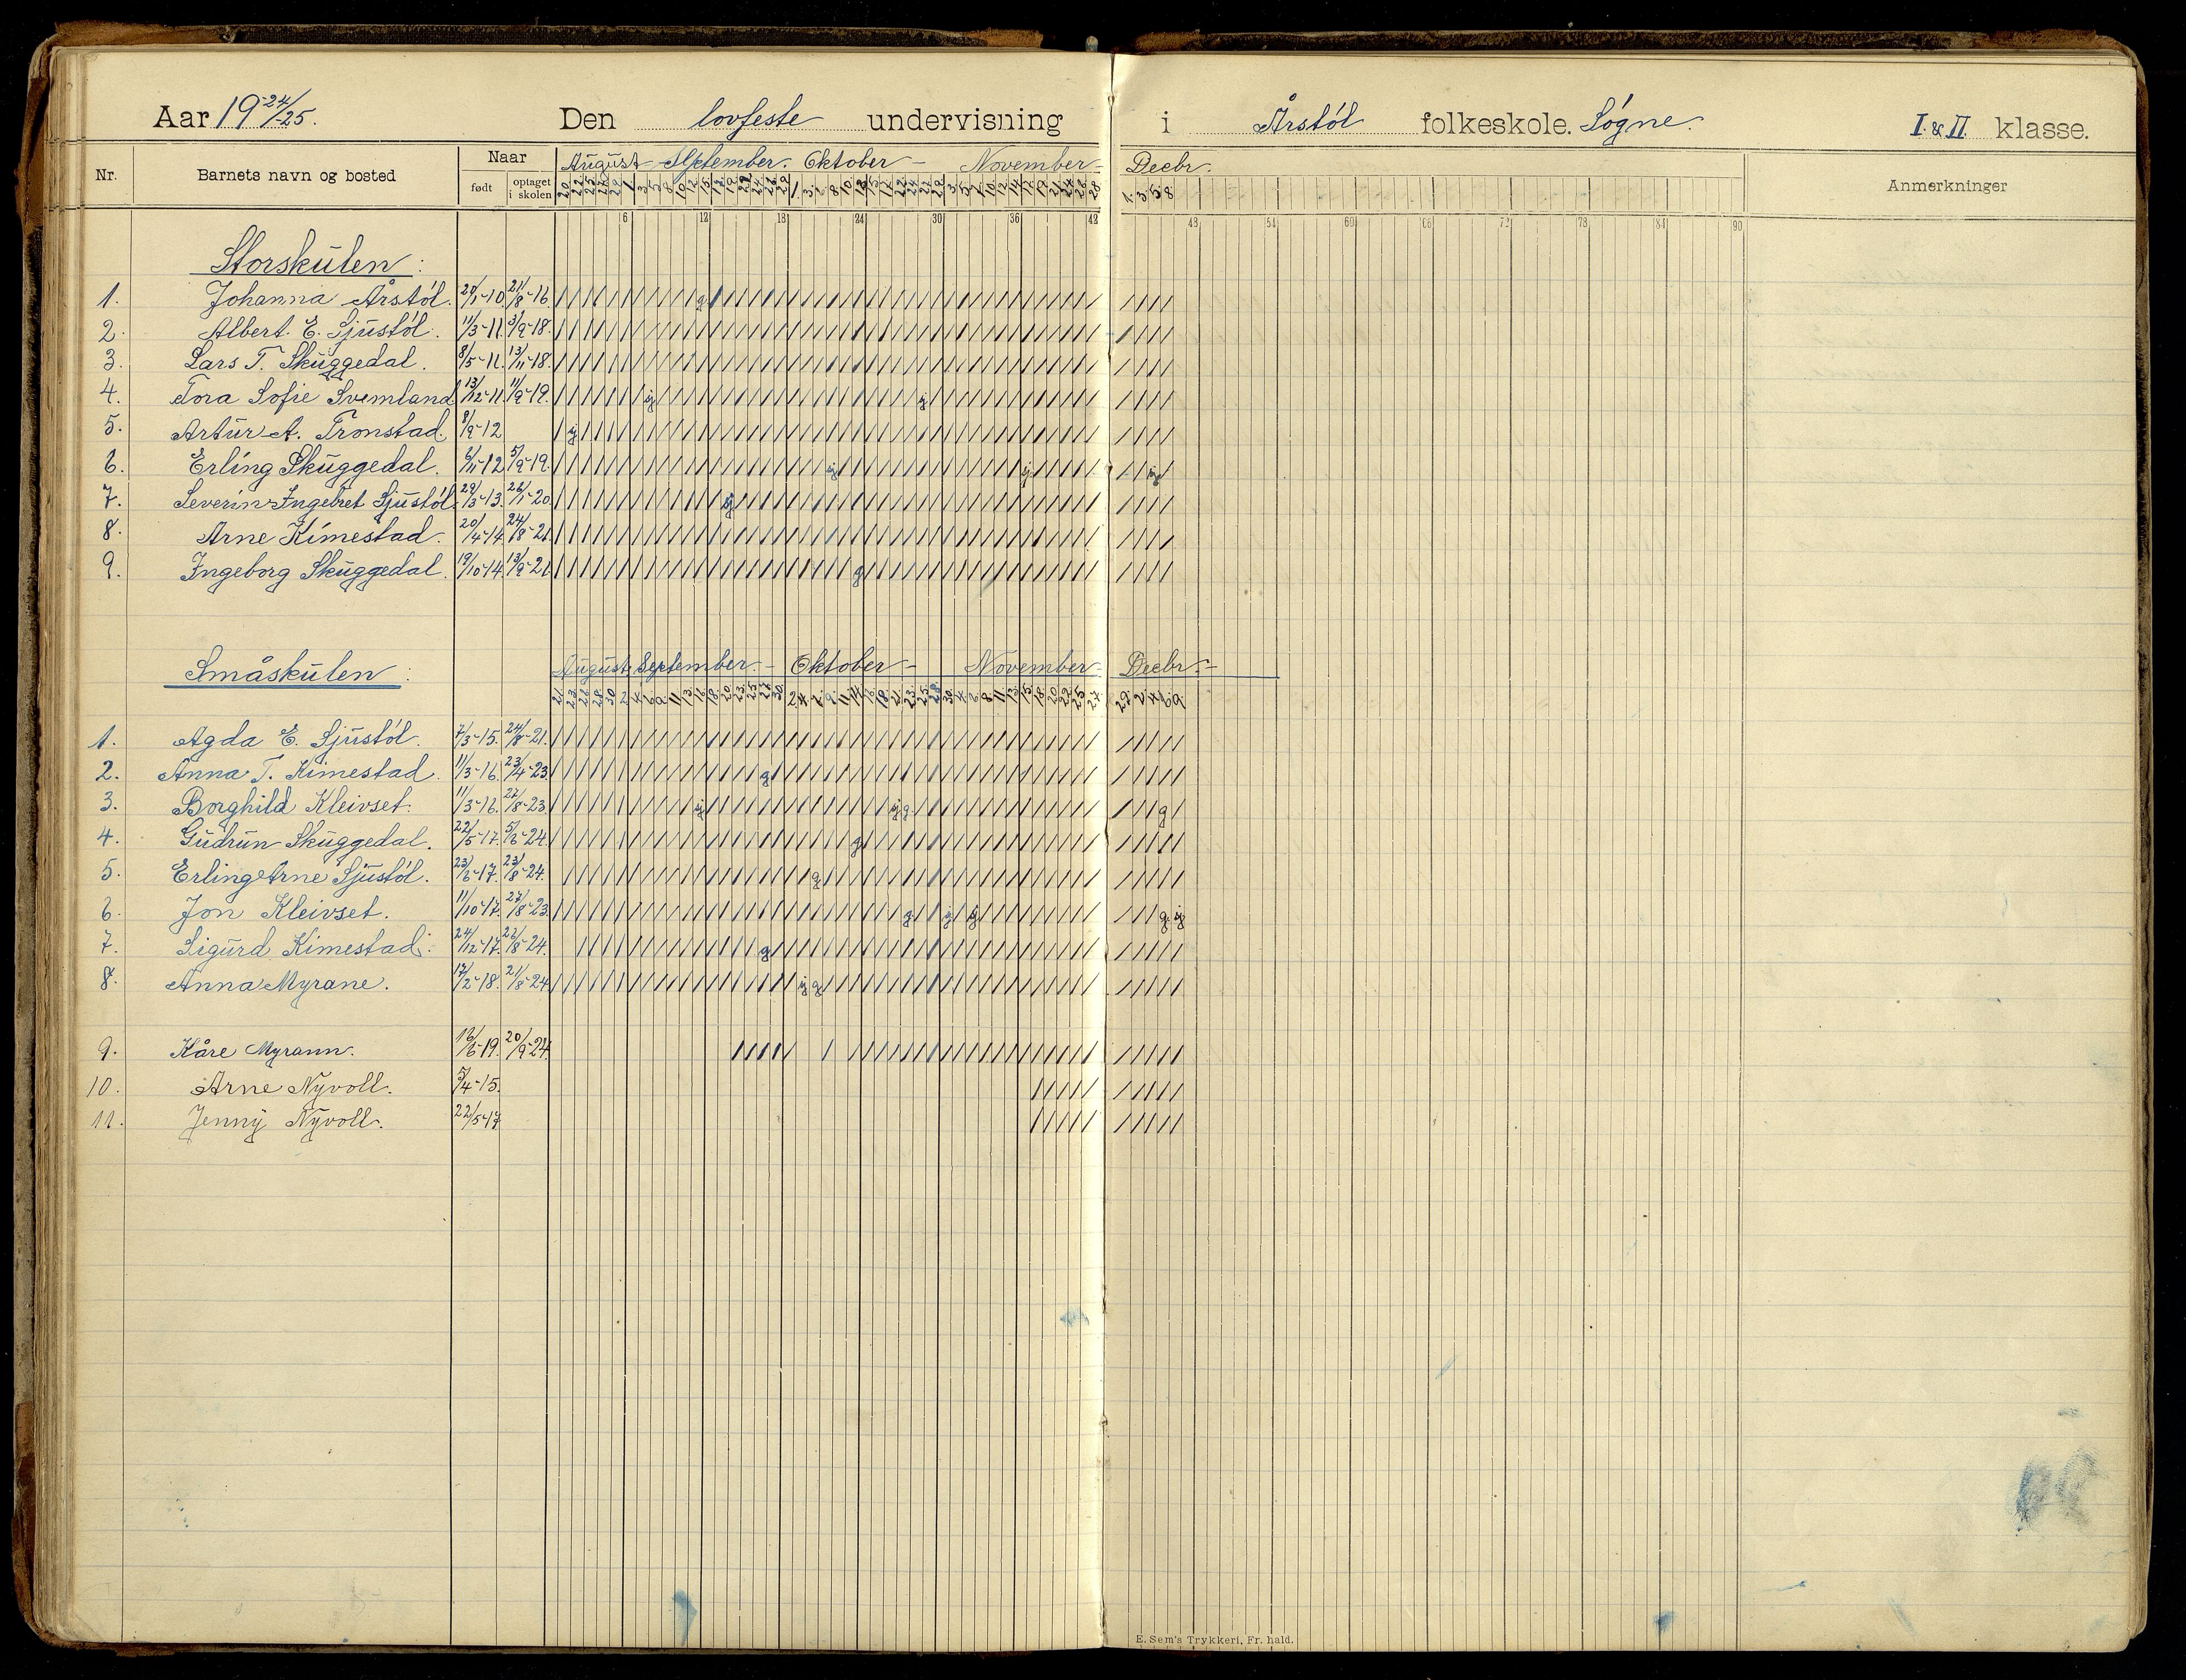 Aar 19 24/25. Den lovfeste undervisning i Årstól folkeskole. Søgne. I. & II. klasse.
Nr. Barnets navn og bosted Naar født optaget i skolen August September. Oktober – November – Decbr. Anmerkninger
6 12 18 24 30 36 42 48 54 60 66 72 78 84 90
Storskulen:
1. Johanna Årstól. 20/1-10. 21/8-16.
2. Albert E. Sjustól. 11/3-11. 3/9-18.
3. Lars T. Skuggedal. 8/5-11. 13/11-18.
4. Tora Sofie Svemland 13/12-11. 11/9-19.
5. Artur A. Tronstad. 8/9-12
6. Erling Skuggedal. 6/11-12 5/9-19.
7. Severin Ingebret Sjustól. 29/3-13. 26/1-20.
8. Arne Kimestad. 20/4-14. 24/8-21.
9. Ingeborg Skuggedal. 19/10-14. 13/9-21.
Småskulen: August September. – Oktober – November – Decbr. –
1. Agda E. Sjustól. 7/3-15. 24/8-21.
2. Anna T. Kimestad. 11/3-16. 23/4-23.
3. Borghild Kleivset. 11/3-16. 22/8-23.
4. Gudrun Skuggedal. 22/5-17. 24.
5. Erling Arne Sjustól. 23/6-17. 23/8-24.
6. Jon Kleivset. 11/10-17. 27/8-23.
7. Sigurd Kimestad. 24/12-17. 26/8-24.
8. Anna Myrane. 17/2-18. 21/8-24.
9. Kåre Myrann. 16/6-19. 20/9-24.
10. Arne Nyvoll. 5/4-15.
11. Jenny Nyvoll. 22/5-17
E. Sem's Trykkeri, Fr. hald.